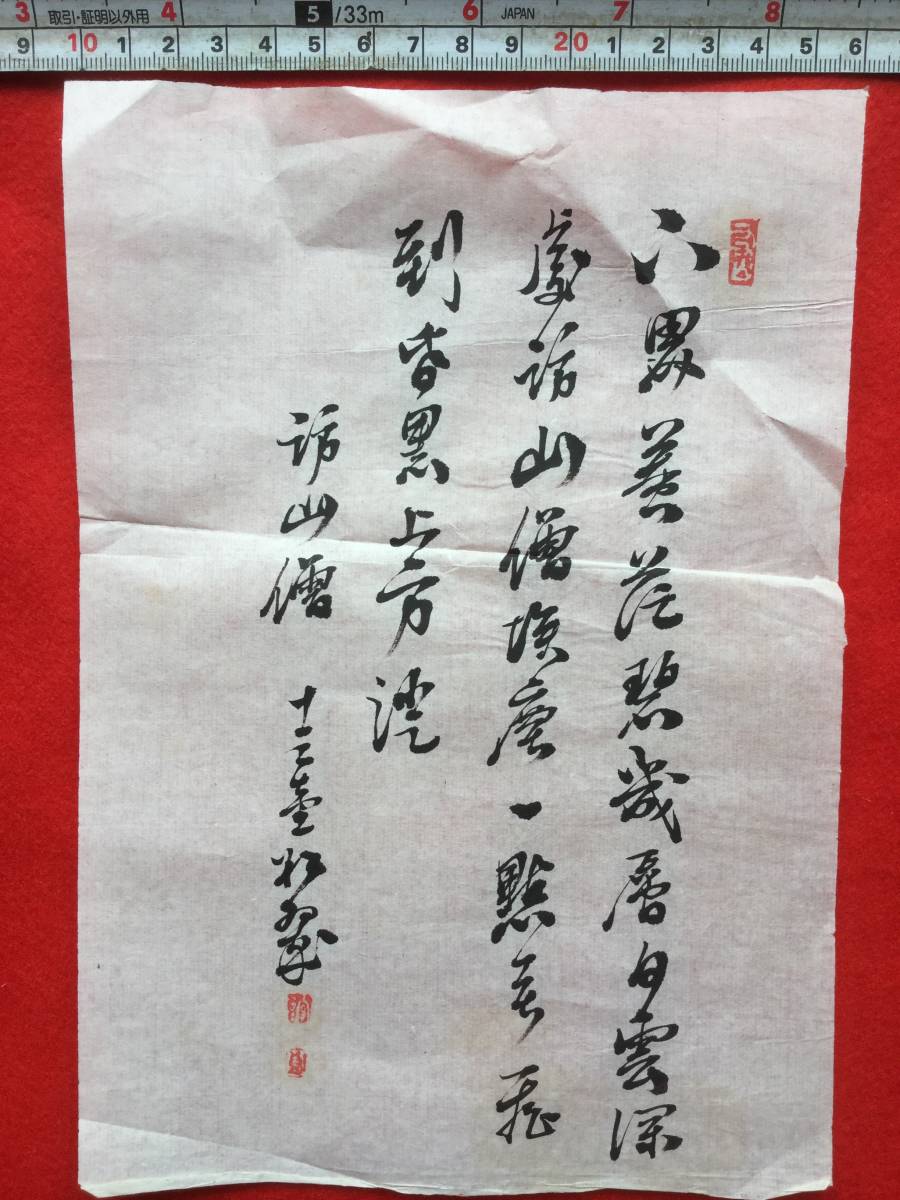 3 取引・証明以外用 4 5 /33m 6 JAPAN 7 8
9 10 1 2 3 4 5 6 7 8 9 20 1 2 3 4 5 6
六 蒼茫碧幾層白雲深
處訪山僧埃塵一點無
到昏黒上方燈
訪山僧
十二